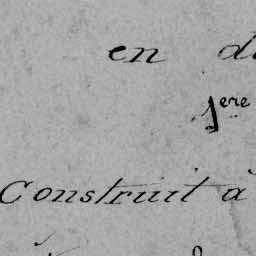 en
1ere
Construit à